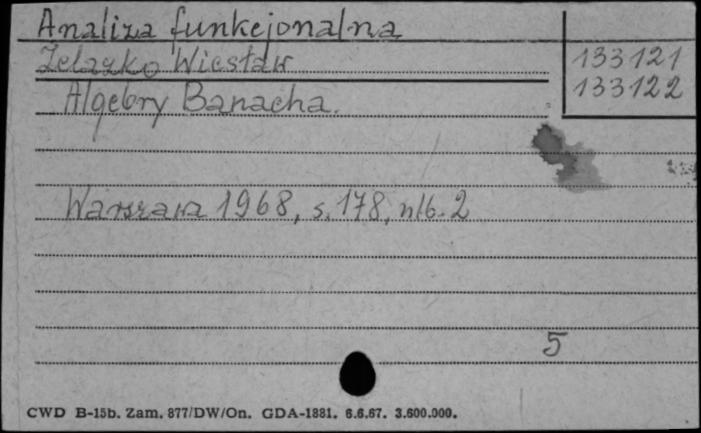 Analiza funkcjonalna
Żelazko Wiesław
133121
133122
Algebry Banacha.
Warszawa 1968, s. 178, nlb. 2
5
CWD B-15b. Zam. 877/DW/On. GDA-1881. 6.6.67. 3.600.000.